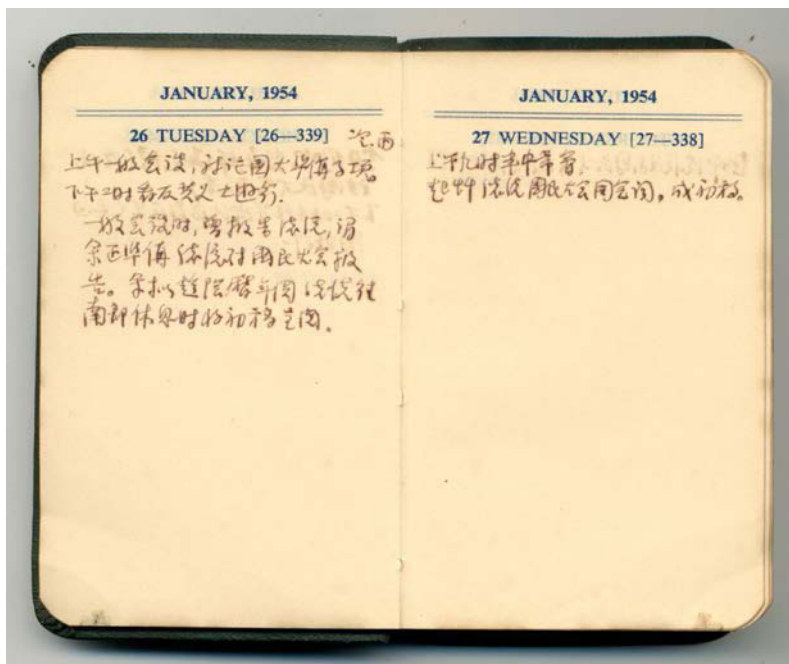 JANUARY, 1954
26 TUESDAY [26—339]
冷雨
上午一般会议,讨论国大准备事项
下午二时看反共义士游行.
一般会议时,曾报告总统,谓
余正准备总统对国民大会报
告。余拟趁阴历年间总统往
南部休息时将初稿呈阅。
JANUARY, 1954
27 WEDNESDAY [27—338]
上午九时半中常会
起草总统国民大会开会词,成初稿。